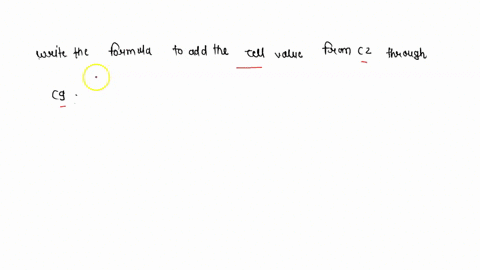 write the formula to add the cell value from C2 through
C9.